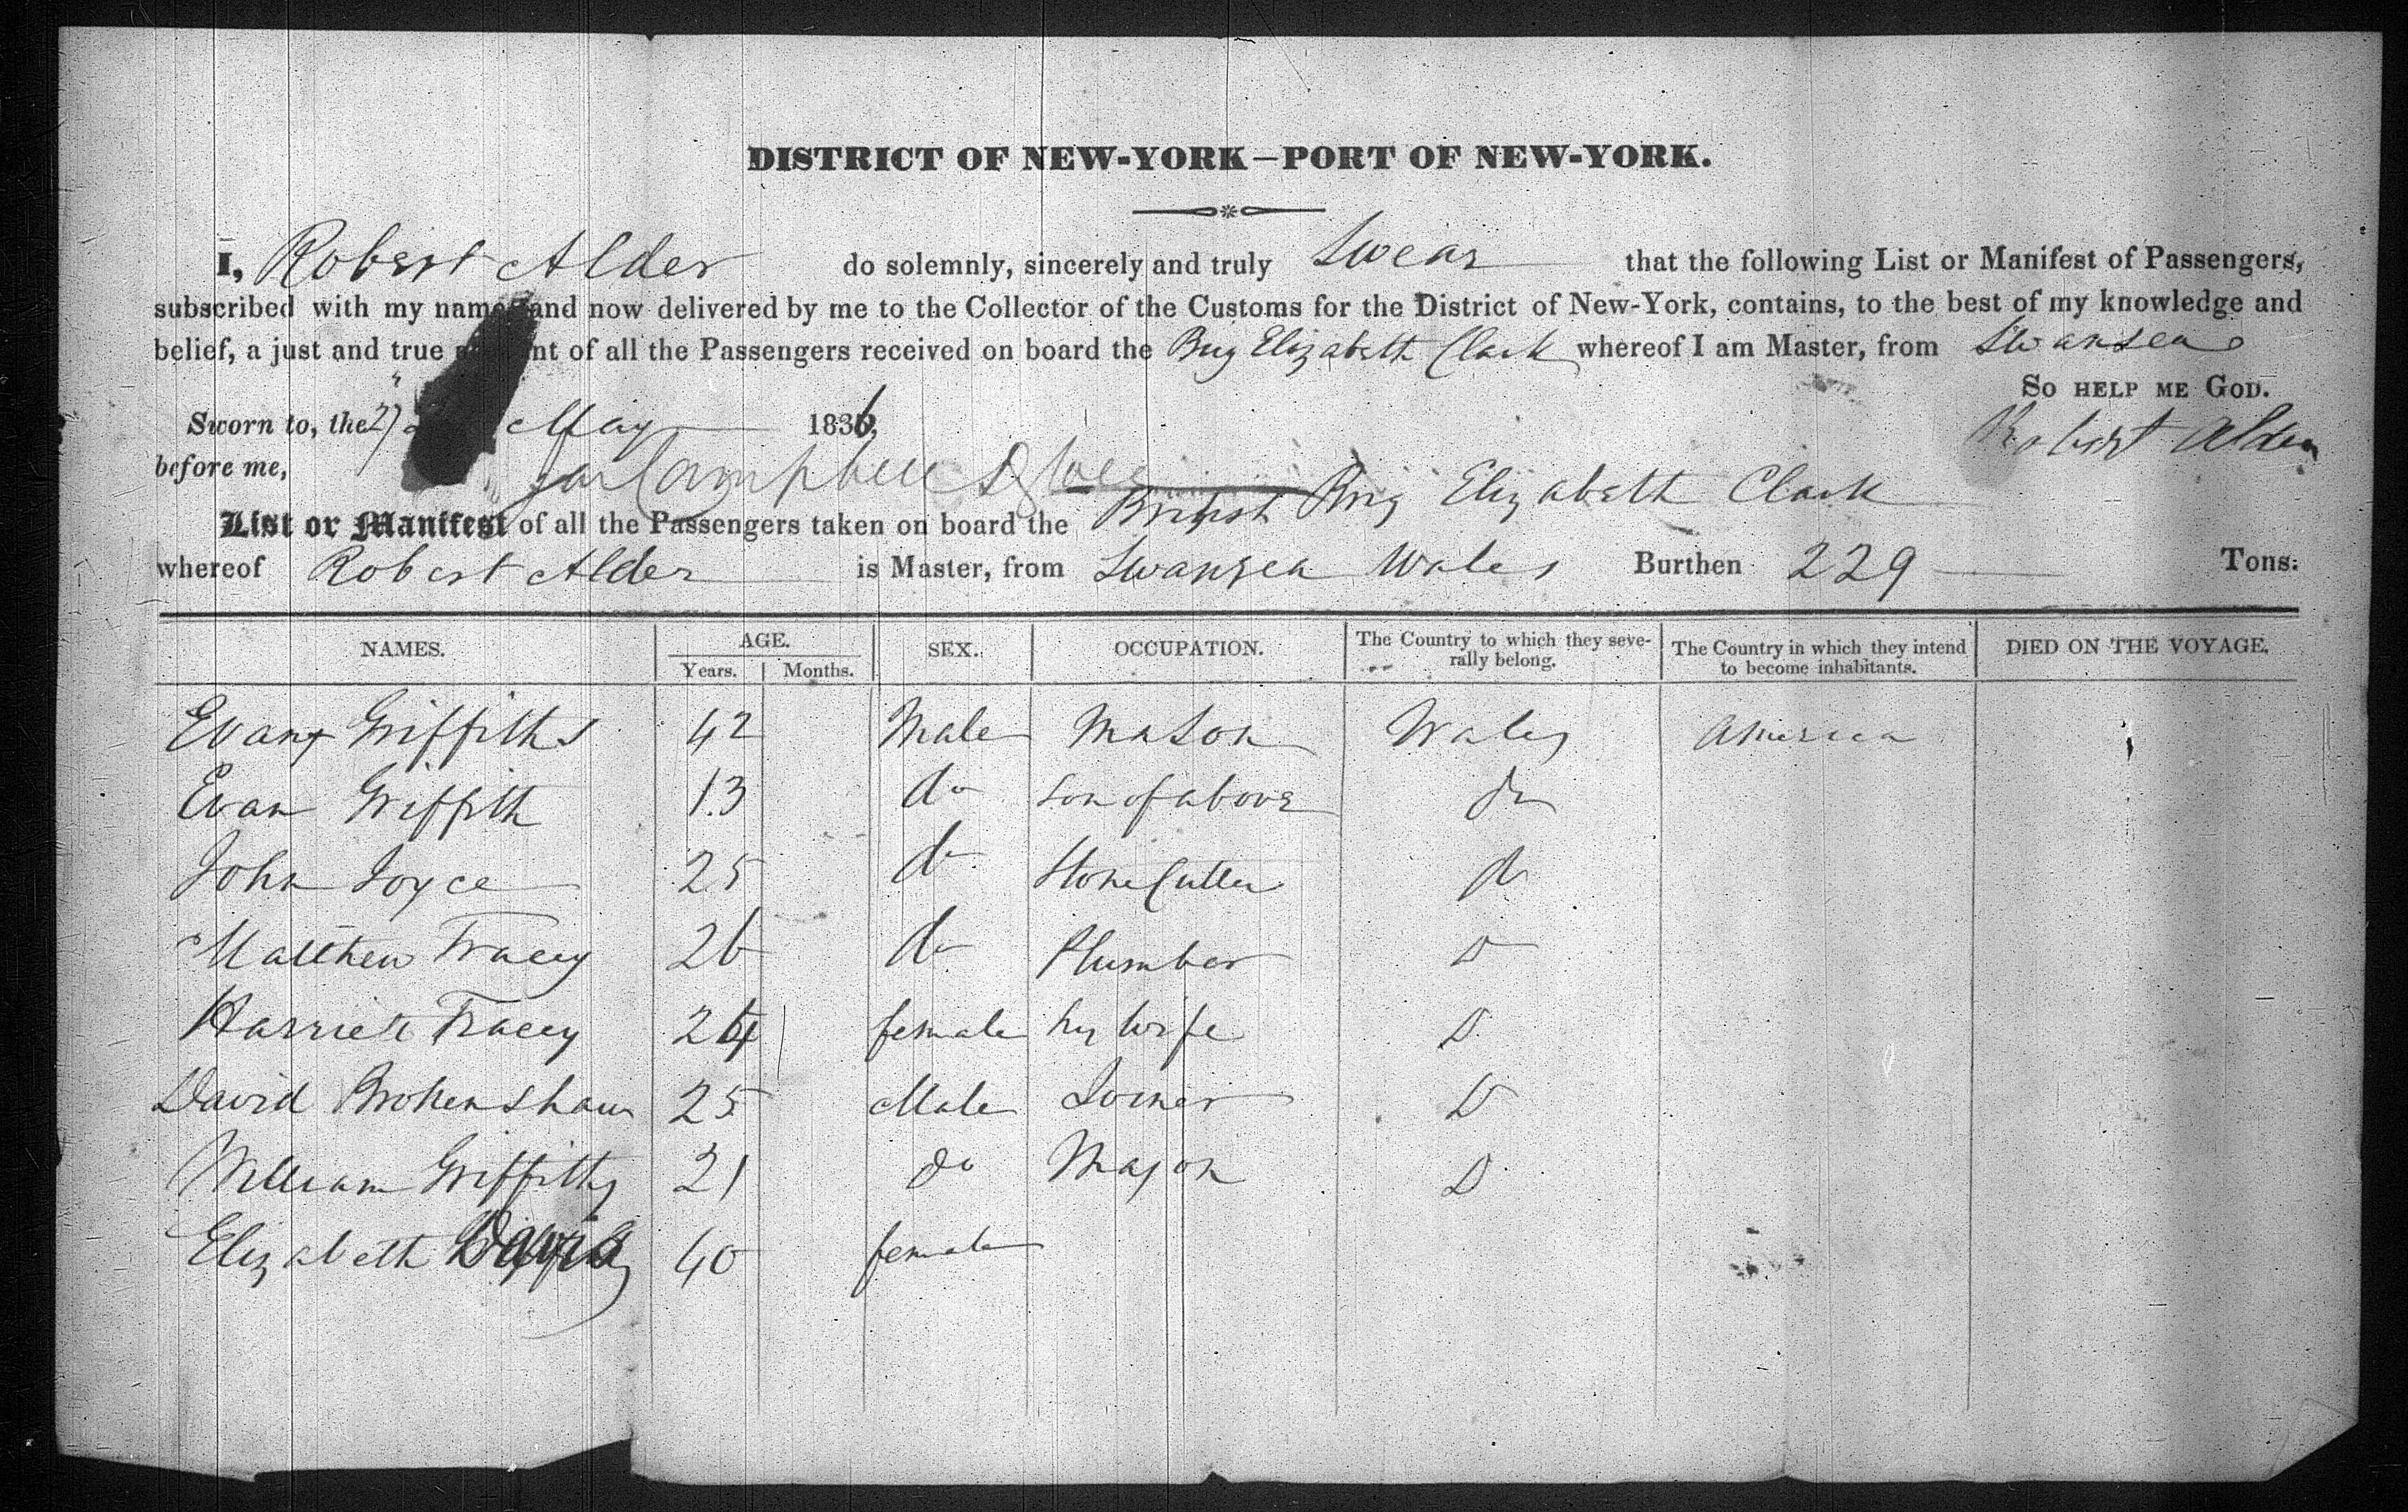 DISTRICT OF NEW-YORK—PORT OF NEW-YORK.
I, Robert Alder do solemnly, sincerely and truly Swear that the following List or Manifest of Passengers,
subscribed with my name and now delivered by me to the Collector of the Customs for the District of New-York, contains, to the best of my knowledge and
belief, a just and true nt of all the Passengers received on board the Brig Elizabeth Clark whereof I am Master, from Swansea
SO HELP ME GOD.
Sworn to, the 27 May 1836,
Robert Alder
before me, Campbell
List or Manifest of all the Passengers taken on board the British Brig Elizabeth Clark
whereof Robert Alder is Master, from Swansea Wales Burthen 229 Tons:
NAMES. AGE. Years. Months. SEX. OCCUPATION. The Country to which they severally belong. The Country in which they intend to become inhabitants. DIED ON THE VOYAGE.
Evans Griffiths 42 Male Mason Wales America
Evan Griffith 13 do Son of above do
John Joyce 25 do Stone Cutter do
Matthew Tracey 26 do Plumber D
Harriete Tracey 24 female hys wife D
David Brokenshaw 25 Male Joiner D
William Griffiths 21 do Mason D
Elizabeth Davis 40 female